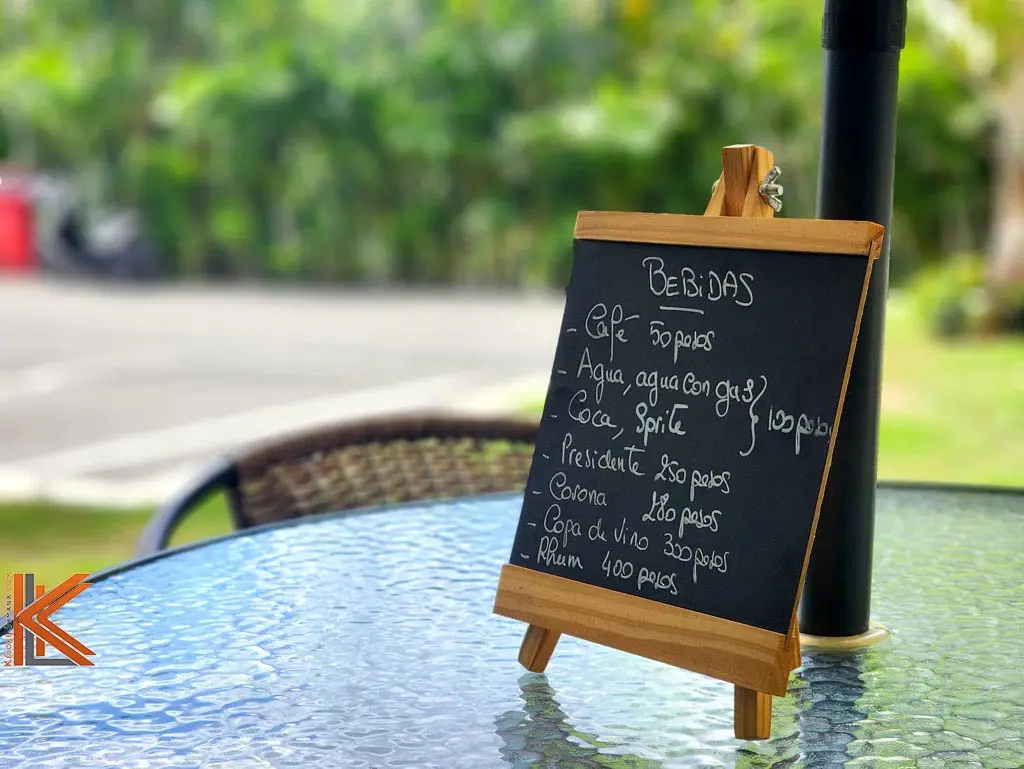 BEBIDAS
- Café 50 pesos
- Agua, agua con gas } 100 pesos
- Coca, Sprite
- Presidente 250 pesos
- Corona 280 pesos
- Copa de vino 300 pesos
- Rhum 400 pesos